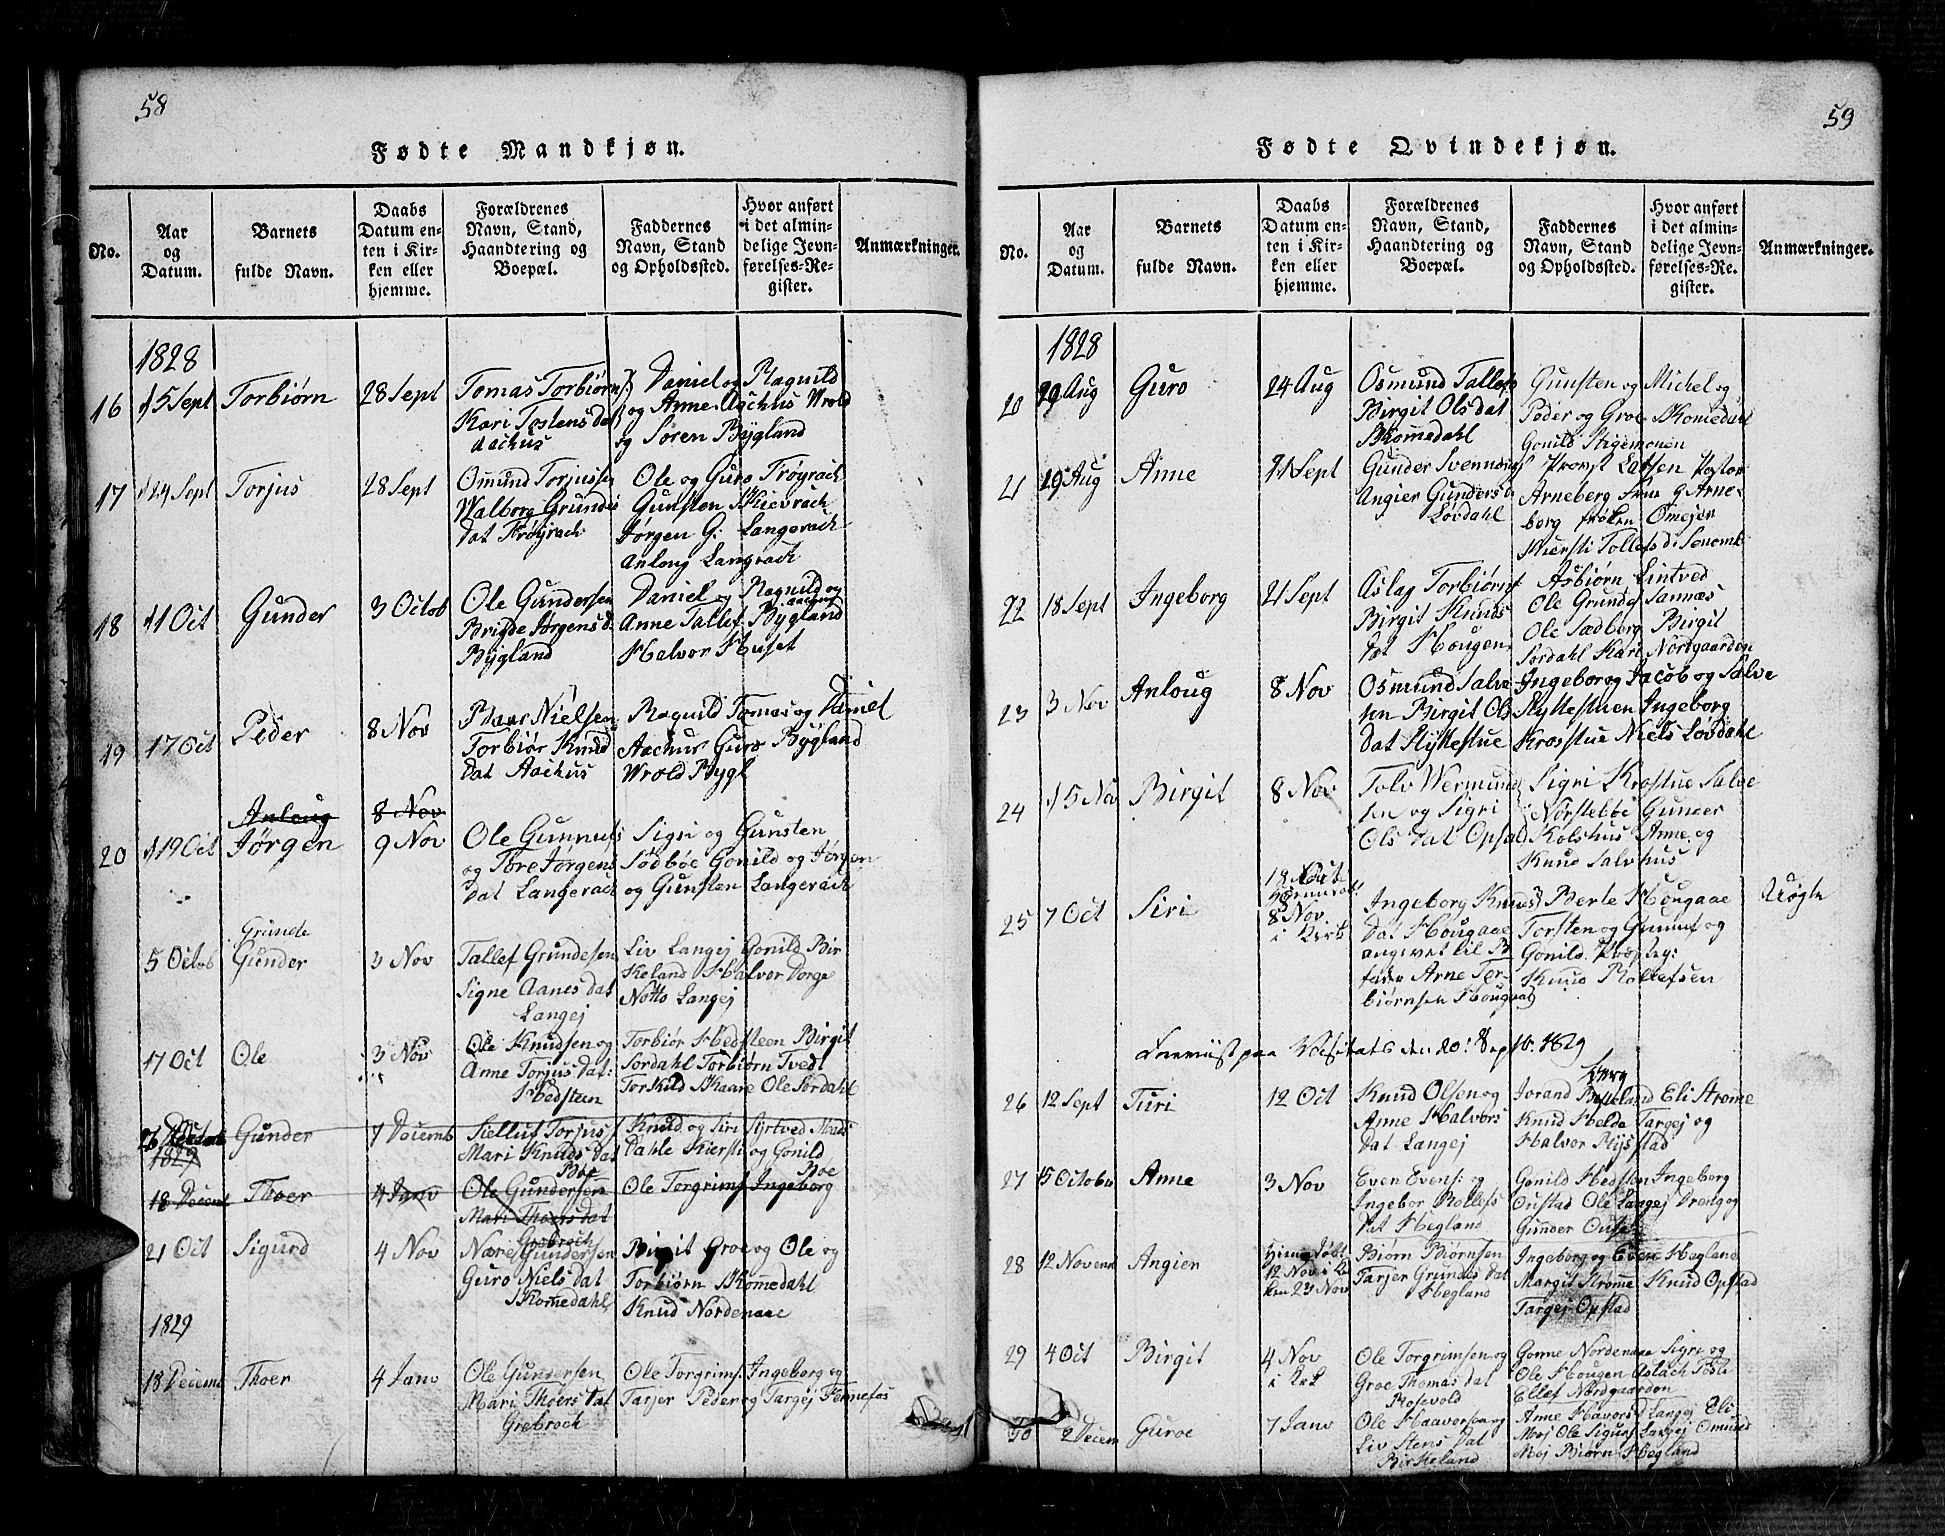 58
Fødte Mandkjøn.
No.
Aar
og
Datum.
Barnets
fulde Navn.
Daabs
Datum en-
ten i Kir-
ken eller
hjemme.
Forældrenes
Navn, Stand,
Haandtering og
Boepæl.
Faddernes
Navn, Stand
og Opholdssted.
Hvor anført
i det almin-
delige Jevn-
førelses-Re-
gister.
Anmærkninger.
1828
16 15 Sept Torbiørn 28 Sept
Tomas Torbiørn
Kari Tostens dat
Aachus
Daniel og Ragnild
og Anne Aachus Wrold
og Søren Bygland
17 24 Sept Torjus 28 Sept
Omund Torjussen
Walborg Grundes
dat Frøyrach
Ole og Guro Frøyrach
Gunsten Skievrach
Jørgen G: Langerach
Anloug Langrach
18 11 Oct Gunder 3 Octob
Ole Gundersen
Brigde Jørgens d.
Bygland
Daniel og Ragnild og
Anne Tallef Bygland
Halvor Huset
19 17 Oct Peder 8 Nov
Nielsen
Torbiør Knud
dat Aachus
Ragnild Tomas og Daniel
Aachus Guro Bygland
Wrold Bygl
Anloug 8 Nov
20 19 Oct Jørgen 9 Nov
Ole Gunnufs
og Tore Jørgens
dat Langerach
Sigri og Gunsten
Sødbøe Gonild og Jørgen
og Gunsten Langerach
Grunde
5 Octob Gunder 3 Nov
Tallef Grundesen
Signe Aanes dat
Langej
Liv Langej Gonild Bir
keland Halvor Dorge
Notto Langej
17 Oct Ole 3 Nov
Ole Knudsen og
Anne Torjus dat:
Hedsteen
Torbiør Hedsteen Birgit
Sordahl Torbiørn Tvedt
Torkild Skaare Ole Sordahl
26 Gunder 7 Decemb
1829
Torjus
Mari Knuds dat
Bøe
Knud og Siri
Dahle Kiersti og Gonild
Bøe
18 Decemb Thoer 4 Janv
Ole Gundersen
Mari Thoers dat
Grebroch
Ole Torgrims Ingeborg
21 Oct Sigurd 4 Nov
Nære Gundersen
Guro Niels dat
Skomedahl
Birgit Groe og Ole og
Torbiørn Skomedahl
Knud Nordenaae
1829
18 Decemb Thoer 4 Janv
Ole Gundersen
Mari Thoers dat
Grebroch
Ole Torgrims Ingeborg og
Tarjer Peder og Targej Fennefos
59
Fødte Qvindekjøn.
No.
Aar
og
Datum.
Barnets
fulde Navn.
Daabs
Datum en-
ten i Kir-
ken eller
hjemme.
Forældrenes
Navn, Stand,
Haandtering og
Boepæl.
Faddernes
Navn, Stand
og Opholdssted.
Hvor anført
i det almin-
delige Jevn-
førelses-Re-
gister.
Anmærkninger.
1828
20 Aug Guro 24 Aug
Osmund Tallefs
Birgit Olsdat
Skomedahl
Gunsten og Michel og
Peder og Groe Skomedahl
Gonild Stigemonen
21 Aug Anne 21 Sept
Gunder Svennongs
Angier Gunders d
Løvdahl
Provst Lassen Pastor
Arneberg Arne-
borg Frøken Omejer
Kiersti Tollefs d:
22 18 Sept Ingeborg 21 Sept
Aslag Torbiørns
Birgit Knuds
dat Hougen
Asbiørn Lintved
Ole Grundes Sannæs
Ole Sædberg Birgit
Sordahl Kari Nordgaarden
23 3 Nov Anloug 8 Nov
Osmund Salve
sen Birgit Ols
dat Flykestue
Ingeborg Jacob og Salve
Flykestuen Ingeborg
Krosstue Niels Lovdahl
24 15 Nov Birgit 8 Nov
Tolv Wermund
sen og Sigri
Ols dat Opstad
Sigri Krostue Salve
Norstebbe Gunder
Kolshus Anne og
Knud Salvhus
25 7 Oct Siri
8 Nov
i Kirk
Ingeborg Knuds
dat Hougaae
angivet til B
fader Arne Tor-
biørnsen Hougaae
Berte Hougaae
Torsten og Gunuf og
Gonild
Knud Rollefsen
Uægte
paa Visitats den 20: Sept. 1829
26 12 Sept Turi 12 Oct
Knud Olsen og
Anne Halvors
dat Langej
Berg
Jorand Eli Strome
Knud Helde Targej og
Halvor Rysstad
27 5 Octobr Anne 3 Nov
Even Evens: og
Ingebor Rollefs
dat Hegland
Gonild Hedsten Ingeborg
Oustad Ole Langej Dreng og
Gunder
28 12 Novemb Angien
Hjemdøbt
12 Nov i Kir
ken 23 Nov
Biørn Biørnsen
Tarjer Grundes dat
Hegland
Ingeborg og Even Hegland
Margit Strome Knud Opstad
Targej Opstad
29 4 Oct Birgit 4 Nov
i Kirk
Ole Torgrimsen og
Groe Thomas dat
Rosevold
Gonne Nordenaa Sigri og
Ole Hougen Aslach Føsli
Ellef Nordgaarden
30 2 Decem Guroe 7 Janv
Ole Haavorsen og
Liv Stens dat
Birkeland
Anne Havors d Langej Eli
Moj Ole Sigurs Langej Omund
Moj Biørn Hegland